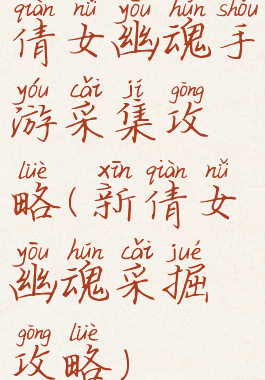 qiàn nǚ yōu hún shǒu
倩女幽魂手
yóu cǎi jí gōng
游采集攻
lüè xīn qiàn nǚ
略(新倩女
yōu hún cǎi jué
幽魂采掘
gōng lüè
攻略)